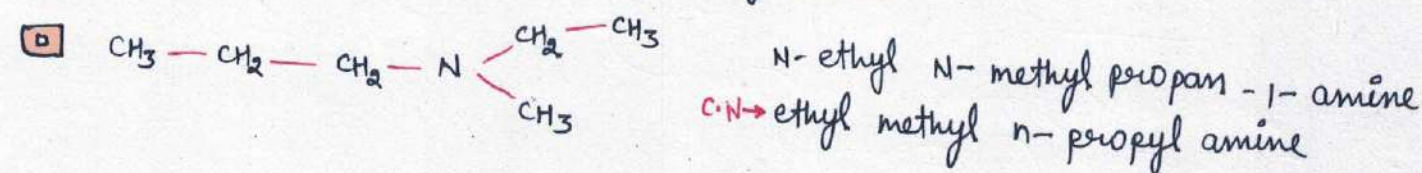 D CH3 — CH2 — CH2 — N CH2 — CH3
CH3
N- ethyl N- methyl propan -1- amine
C.N→ ethyl methyl n- propyl amine